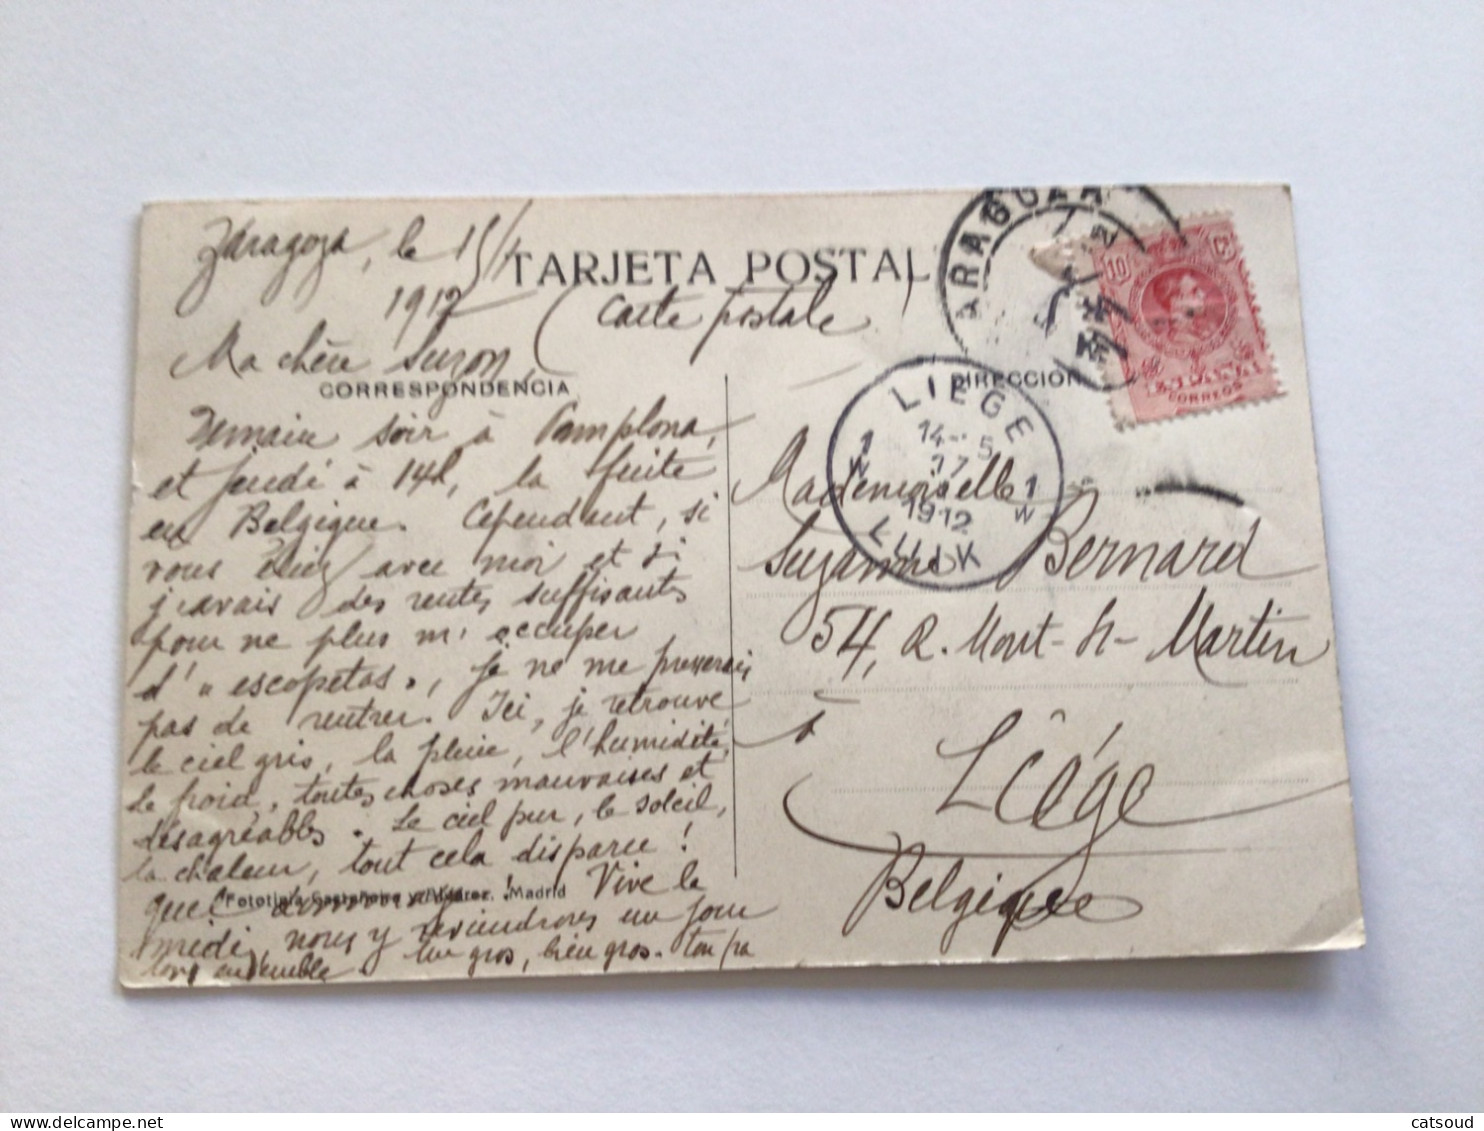 Zaragoza, le 15/
1912
TARJETA POSTAL
(Carte postale)
Ma chère Suzon,
CORRESPONDENCIA
Demain soir à Pamplona,
et jeudi à 14h, la fuite
en Belgique. Cependant, si
vous étiez avec moi et si
j'avais des rentes suffisantes
pour ne plus m'occuper
d'"escopetas", je ne me presserais
pas de rentrer. Ici, je retrouve
le ciel gris, la pluie, l'humidité,
le froid, toutes choses mauvaises et
désagréables. Le ciel pur, le soleil,
la chaleur, tout cela disparee!
quel ! Vive le
midi, nous y reviendrons un jour
tous ensemble. Un gros, bien gros. Ton pa
Fototipia Castañeira y Alvarez. Madrid
DIRECCIÓN
Mademoiselle
Suzanne Bernard
54, R. Mont-St-Martin
à
Liége
Belgique
LIEGE
14 5
1 1
W W
1912
LUIK
10 Cs
ESPAÑA
CORREOS
catsoud